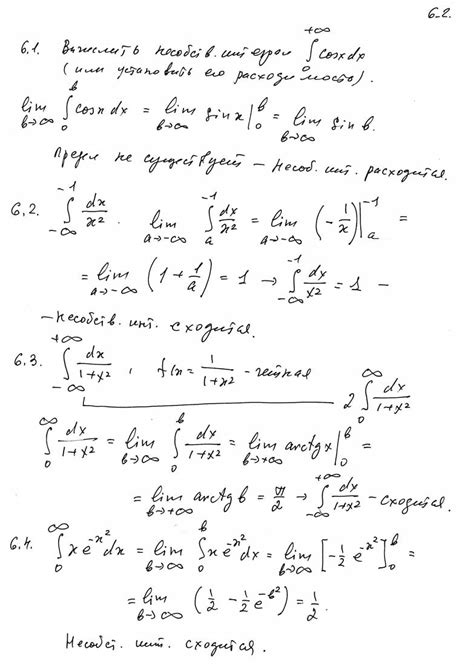 6.2.
6.1. Вычислить несобств. интеграл ∫₀^{+∞} cosx dx
(или установить его расходимость).
lim_{b→∞} ∫₀^b cosx dx = lim_{b→∞} sinx |₀^b = lim_{b→∞} sin b.
Предел не существует – Несоб. инт. расходится.
6.2. ∫_{-∞}^{-1} dx/x². lim_{a→-∞} ∫_a^{-1} dx/x² = lim_{a→-∞} (-1/x)|_a^{-1} =
= lim_{a→-∞} (1 + 1/a) = 1 → ∫_{-∞}^{-1} dx/x² = 1 –
– Несобств. инт. сходится.
6.3. ∫_{-∞}^{+∞} dx/(1+x²), f(x = 1/(1+x²) - четная
2 ∫₀^∞ dx/(1+x²)
∫₀^∞ dx/(1+x²) = lim_{b→∞} ∫₀^b dx/(1+x²) = lim_{b→+∞} arctg x |₀^b =
= lim_{b→+∞} arctg b = π/2 → ∫_{-∞}^{+∞} dx/(1+x²) – сходится.
6.4. ∫₀^∞ x e^{-x²} dx = lim_{b→∞} ∫₀^b x e^{-x²} dx = lim_{b→∞} [-1/2 e^{-x²}]₀^b =
= lim_{b→∞} (1/2 - 1/2 e^{-b²}) = 1/2.
Несобст. инт. сходится.